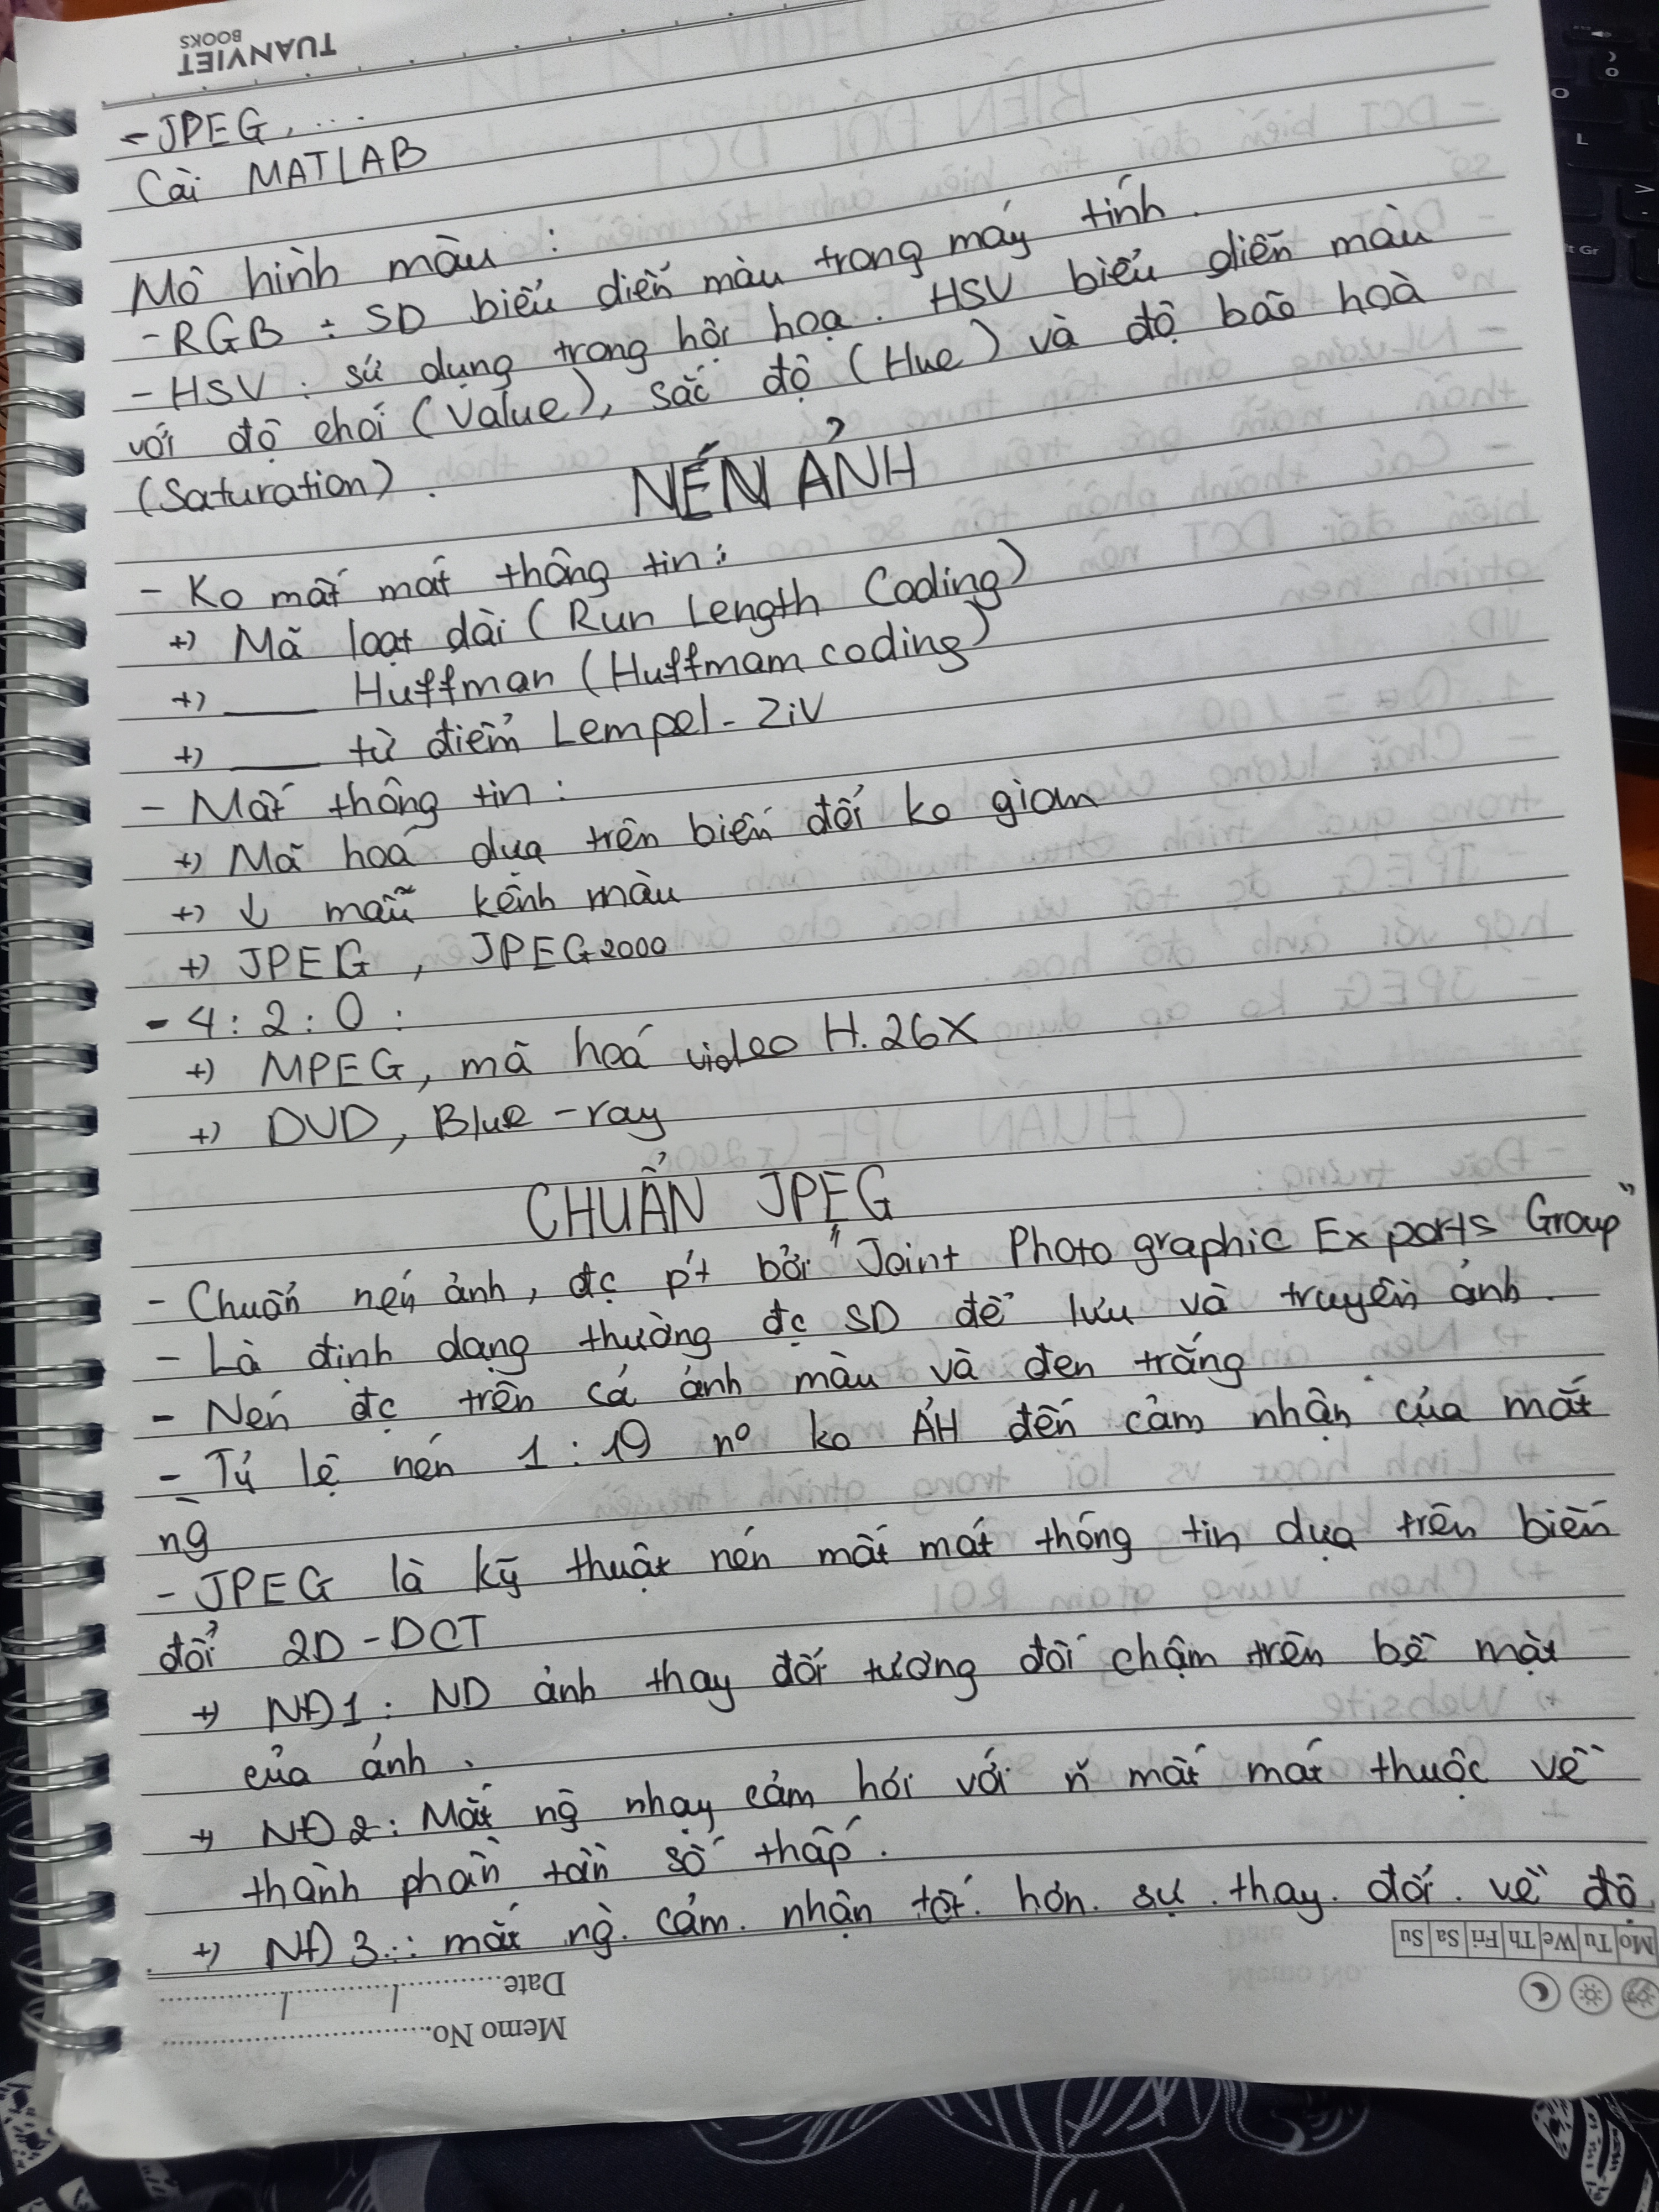 TUANVIET
BOOKS
- JPEG, ...
Cài MATLAB
Mô hình màu :
- RGB : SD biểu diễn màu trong máy tính.
- HSV : sử dụng trong hội hoạ. HSV biểu diễn màu
với độ chói (Value), sắc độ (Hue) và độ bão hoà
(Saturation).
NÉN ẢNH
- Ko mất mát thông tin :
+) Mã loạt dài (Run Length Coding)
+) ___ Huffman (Huffmam coding)
+) ___ từ điểm Lempel - Ziv
- Mất thông tin :
+) Mã hoá dựa trên biến đổi ko gian
+) ↓ mẫu kênh màu
+) JPEG, JPEG2000
- 4 : 2 : 0 :
+) MPEG, mã hoá video H.26X
+) DVD, Blue - ray
CHUẨN JPEG
- Chuẩn nén ảnh, đc pt bởi "Joint Photographic Exports Group"
- Là định dạng thường đc SD để lưu và truyền ảnh.
- Nén đc trên cả ảnh màu và đen trắng.
- Tỷ lệ nén 1 : 19 nº ko ẢH đến cảm nhận của mắt
ng
- JPEG là kỹ thuật nén mất mát thông tin dựa trên biến
đổi 2D - DCT
+) NĐ1 : ND ảnh thay đổi tương đối chậm trên bề mặt
của ảnh.
+) NĐ2 : Mắt ng nhạy cảm hơi với mất mát thuộc về
thành phần tần số thấp.
+) NĐ3 : mắt ng cảm nhận tốt hơn sự thay đổi về độ
Mo Tu We Th Fri Sa Su
Date
Memo No.